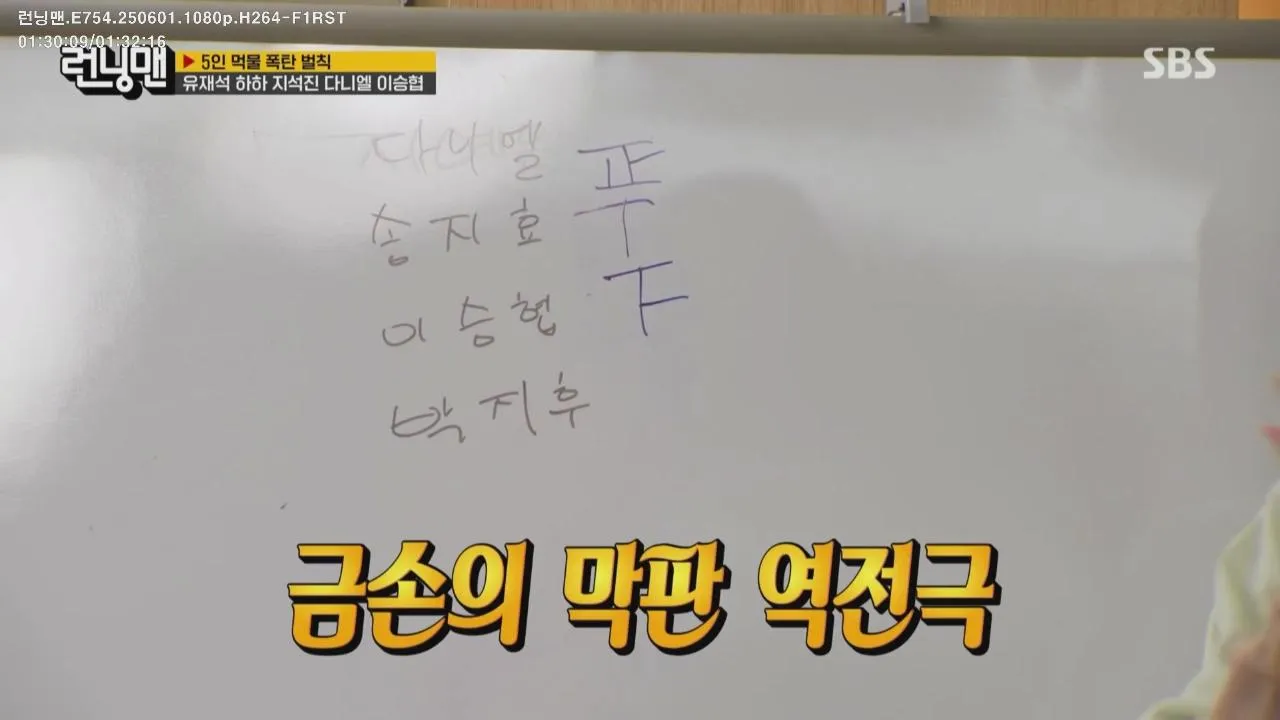 런닝맨.E754.250601.1080p.H264-F1RST
01:30:09/01:32:16
런닝맨
▶ 5인 먹물 폭탄 벌칙
유재석 하하 지석진 다니엘 이승협
SBS
다니엘 正
송지효 丅
이승협 下
박지후
금손의 막판 역전극